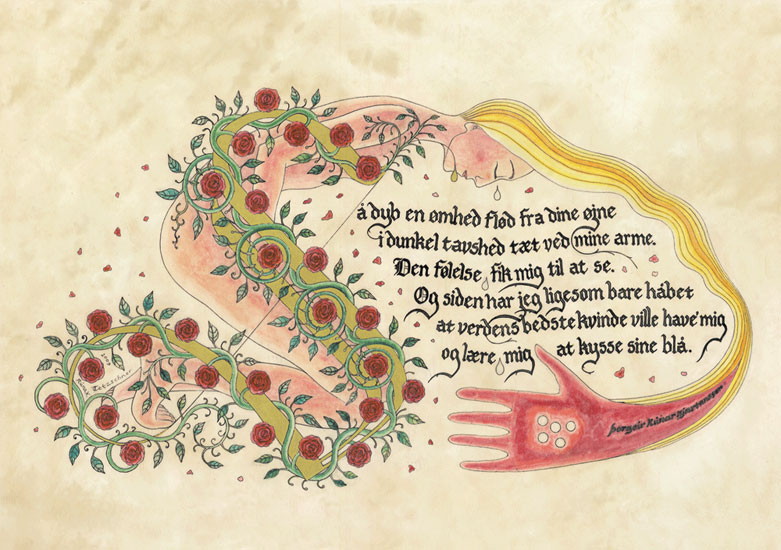 Så dyb en ømhed flød fra dine øjne
i dunkel tavshed tæt ved mine arme.
Den følelse fik mig til at se.
Og siden har jeg ligesom bare håbet
at verdens bedste kvinde ville have mig
og lære mig at kysse sine blå.
þorgeir Rúnar Kjartansson